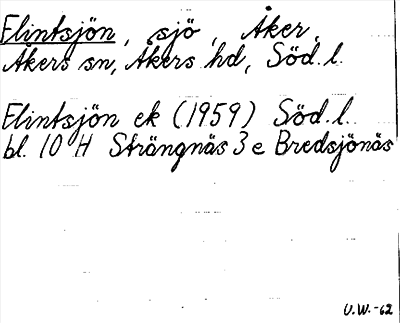 Flintsjön, sjö, Åker,
Åkers sn, Åkers hd, Söd. l.
Flintsjön ek (1959) Söd. l.
bl. 10 H Strängnäs 3 e Bredsjönäs
U.W.-62